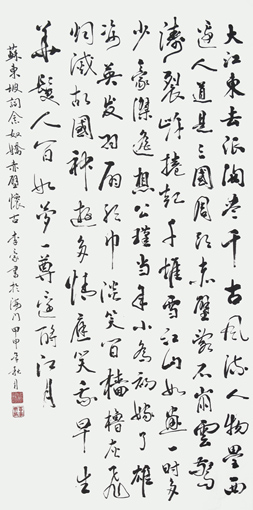 大江東去浪淘盡千古風流人物壘西
邊人道是三國周郎赤壁亂石崩雲驚
濤裂岸捲起千堆雪江山如畫一時多
少豪傑遙想公瑾當年小喬初嫁了雄
姿英发羽扇綸巾淡笑間檣櫓灰飛
烟滅故國神遊多情應笑我早生
華髮人間如夢一尊還酹江月
蘇東坡詞念奴嬌赤壁懷古 李家書於海門甲申年秋月